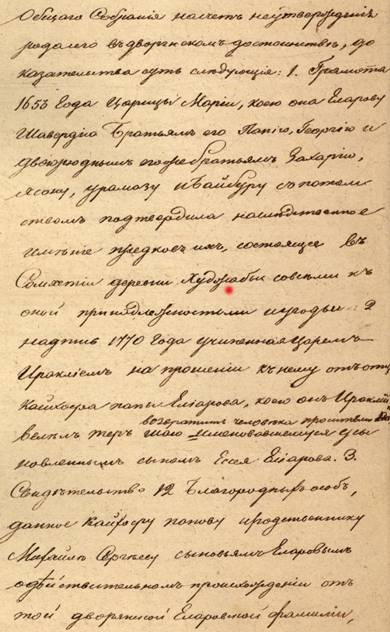 Общаго Собранія насчетъ неутвержденія
рода его въ дворянскомъ достоинствѣ, до
казательства суть слѣдующія: 1. Грамота
1653 Года Царицы Маріи, коею она Еларову
Шавердію Братьямъ его Папію, Георгію и
двоюроднымъ его же братьямъ Захарію,
Ясону, урамазу и Байбуру съ потом
ствомъ подтвердила наслѣдственное
имѣніе предковъ ихъ, состоящее въ
Сомхетіи деревни Худжабы со всѣми къ
оной принадлежностями и угодьи 2
надпись 1770 Года учиненная Царемъ
Иракліемъ на прошеніи къ нему отъ
Кайхосра папы Еларова, коею онъ Ираклій
возвратить человека
велѣлъ именовавшемуся усы
новленнымъ сыномъ Есея Еларова. 3.
Свидѣтельство 12 Благородныхъ особъ,
данное Кайхосру попову и родственнику
Михайлѣ сыновьямъ Еларовымъ
о дѣйствительномъ происхожденіи отъ
той дворянской Еларовской фамиліи,